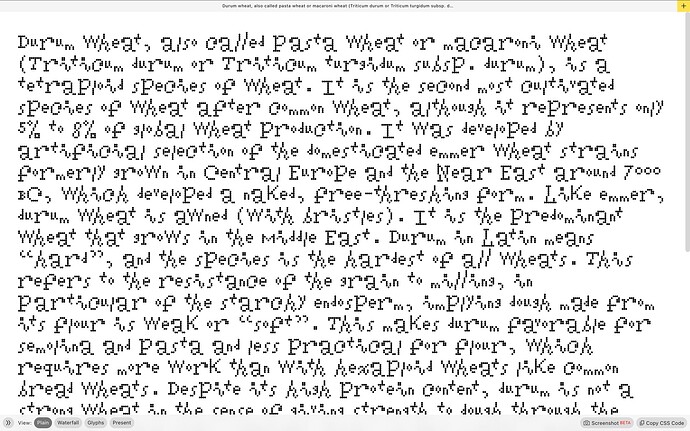 Durum wheat, also called pasta wheat or macaroni wheat (Triticum durum or Triticum turgidum subsp. d...
Durum wheat, also called pasta wheat or macaroni wheat
(Triticum durum or Triticum turgidum subsp. durum), is a
tetraploid species of wheat. It is the second most cultivated
species of wheat after common wheat, although it represents only
5% to 8% of global wheat production. It was developed by
artificial selection of the domesticated emmer wheat strains
formerly grown in Central Europe and the Near East around 7000
BC, which developed a naked, free-threshing form. Like emmer,
durum wheat is awned (with bristles). It is the predominant
wheat that grows in the Middle East. Durum in Latin means
“hard”, and the species is the hardest of all wheats. This
refers to the resistance of the grain to milling, in
particular of the starchy endosperm, implying dough made from
its flour is weak or “soft”. This makes durum favorable for
semolina and pasta and less practical for flour, which
requires more work than with hexaploid wheats like common
bread wheats. Despite its high protein content, durum is not a
strong wheat in the sense of giving strength to dough through the
View: Plain Waterfall Glyphs Present Screenshot BETA Copy CSS Code